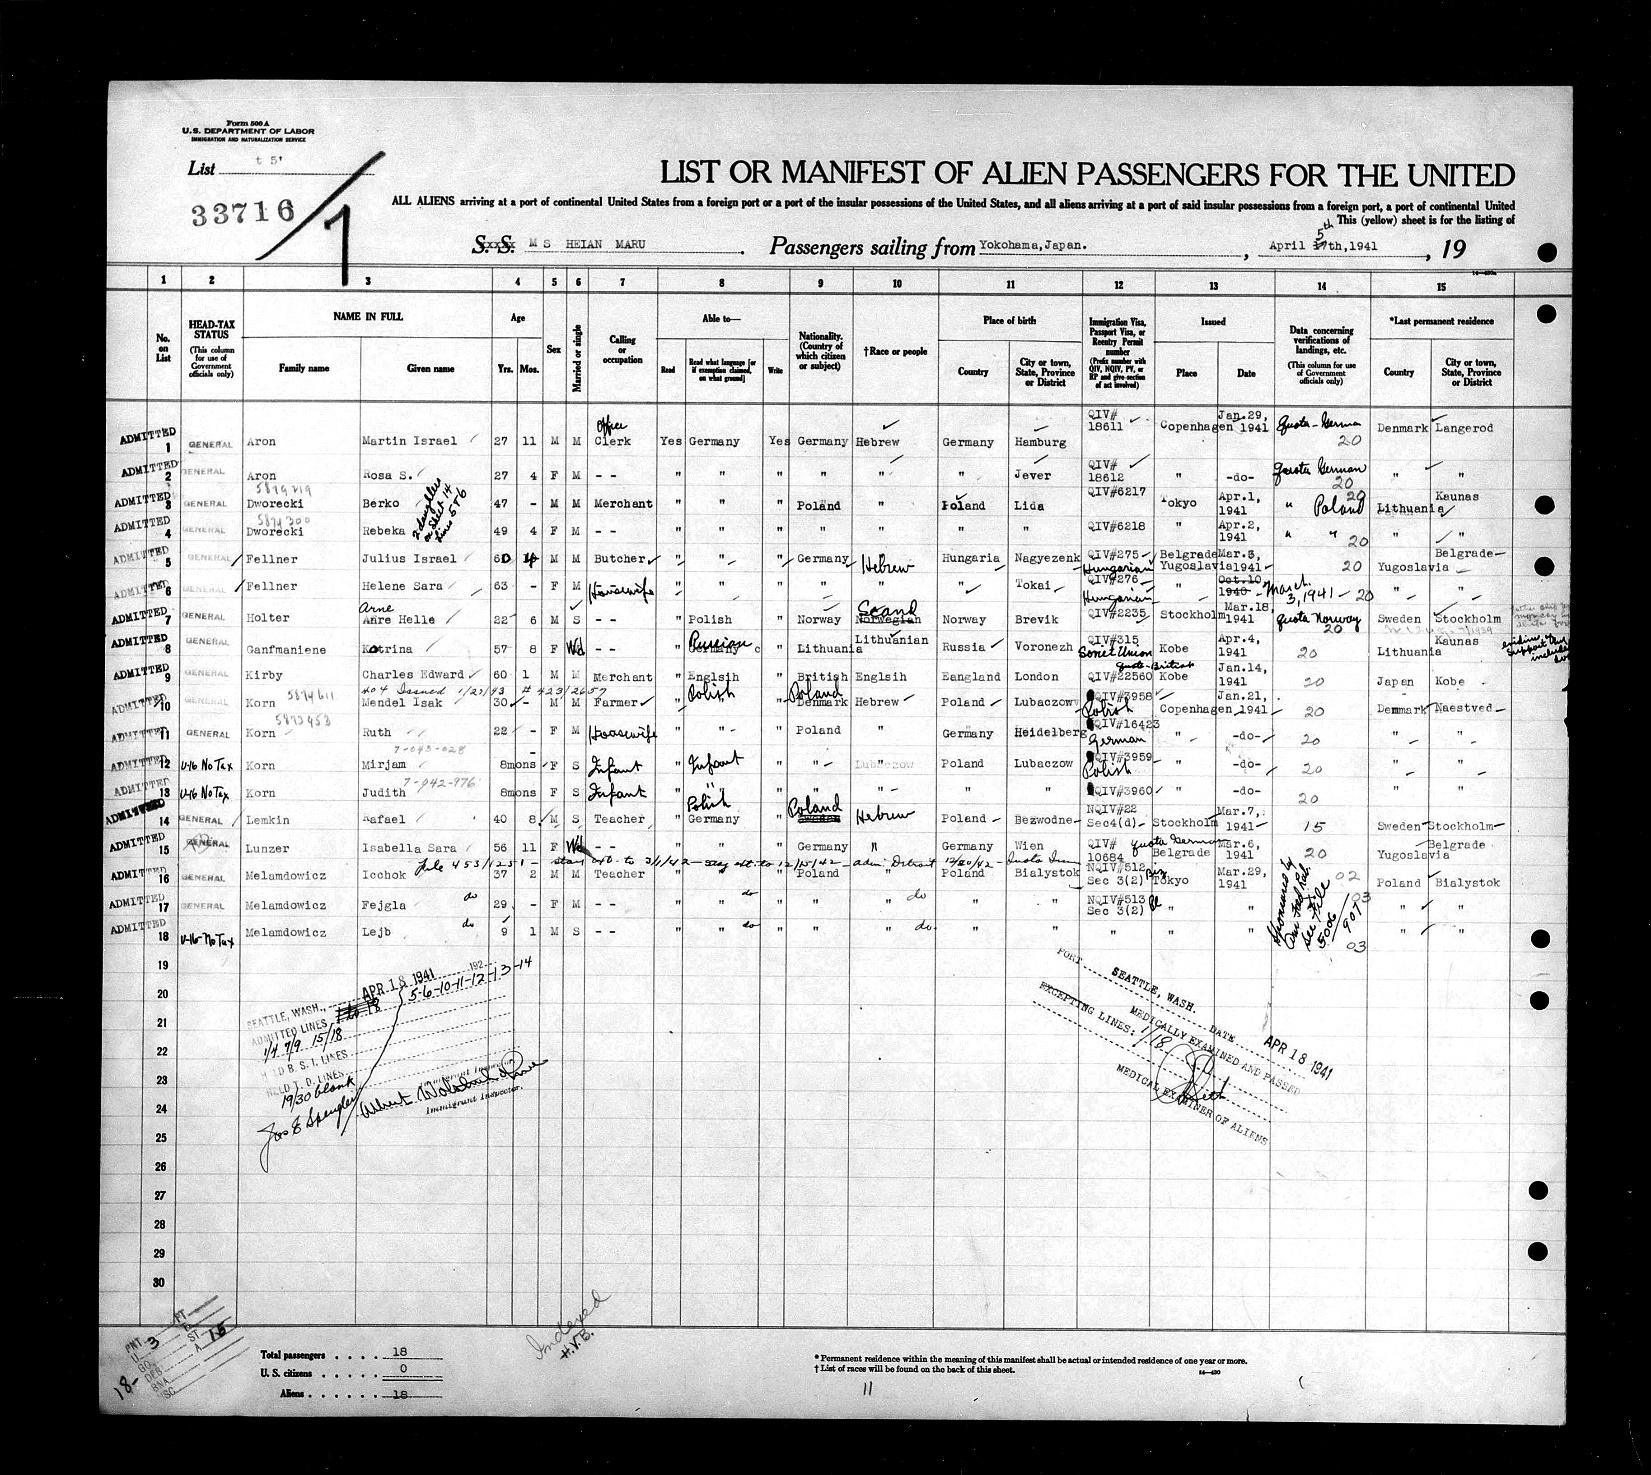 Form 500 A
U.S. DEPARTMENT OF LABOR
IMMIGRATION AND NATURALIZATION SERVICE
List t 5'
33716
1
LIST OR MANIFEST OF ALIEN PASSENGERS FOR THE UNITED
ALL ALIENS arriving at a port of continental United States from a foreign port or a port of the insular possessions of the United States, and all aliens arriving at a port of said insular possessions from a foreign port, a port of continental United
This (yellow) sheet is for the listing of
S. S. M S HEIAN MARU Passengers sailing from Yokohama,Japan. , April 5th 17th,1941 , 19
1 2 3 4 5 6 7 8 9 10 11 12 13 14 15
No. on List
HEAD-TAX STATUS (This column for use of Government officials only)
NAME IN FULL Family name Given name
Age Yrs. Mos.
Sex
Married or single
Calling or occupation
Able to— Read Read what language [or if exemption claimed, on what ground] Write
Nationality. (Country of which citizen or subject)
†Race or people
Place of birth Country City or town, State, Province or District
Immigration Visa, Passport Visa, or Reentry Permit number (Prefix number with QIV, NQIV, PV, or RP and give section of act involved)
Issued Place Date
Data concerning verifications of landings, etc. (This column for use of Government officials only)
*Last permanent residence Country City or town, State, Province or District
ADMITTED 1 GENERAL Aron Martin Israel 27 11 M M Office Clerk Yes Germany Yes Germany Hebrew Germany Hamburg QIV# 18611 Copenhagen Jan.29, 1941 quota-German 20 Denmark Langerod
ADMITTED 2 GENERAL Aron Rosa S. 27 4 F M - - " " " " " " Jever QIV# 18612 " -do- quota German 20 " "
5879219
ADMITTED 3 GENERAL Dworecki Berko 2 daughters on sheet 14 lines 5+6 47 - M M Merchant " " " Poland " Poland Lida QIV#6217 Tokyo Apr.1, 1941 " Poland 20 Lithuania Kaunas
5874300
ADMITTED 4 GENERAL Dworecki Rebeka 49 4 F M - - " " " " " " " QIV#6218 " Apr.2, 1941 " " 20 " "
ADMITTED 5 GENERAL Fellner Julius Israel 60 4 M M Butcher " " " Germany Hebrew Hungaria Nagyezenk QIV#275 Hungarian Belgrade Yugoslavia Mar.3, 1941 20 Yugoslavia Belgrade
ADMITTED 6 GENERAL Fellner Helene Sara 63 - F M Housewife " " " " " " Tokai QIV#276 Hungarian " Oct.10 1940 March 3, 1941 - 20 " "
ADMITTED 7 GENERAL Holter Arne Anre Helle 22 6 M S - - " Polish " Norway Scand Norwegian Norway Brevik QIV#2235 Stockholm Mar.18, 1941 quota Norway 20 Sweden Stockholm
ADMITTED 8 GENERAL Ganfmaniene Katrina 57 8 F Wd - - " Russian Germany " Lithuania Lithuanian Russia Voronezh QIV#315 Soviet Union Kobe Apr.4, 1941 20 Lithuania Kaunas
ADMITTED 9 GENERAL Kirby Charles Edward 60 1 M M Merchant " Englsih " British Englsih Eangland London quota-British QIV#22560 Kobe Jan.14, 1941 20 Japan Kobe
404 Issued 1/27/43 # 423/2657
ADMITTED 10 GENERAL Korn 5874611 Mendel Isak 30 - M M Farmer " Polish " " Poland Denmark Hebrew Poland Lubaczow QIV#3958 Polish Copenhagen Jan.21, 1941 20 Denmark Naestved
5873453
ADMITTED 11 GENERAL Korn Ruth 22 - F M Housewife " " " Poland " Germany Heidelberg QIV#16423 German " -do- 20 " "
7-043-028
ADMITTED 12 U-16 No Tax Korn Mirjam 8mons F S Infant " Infant " " Poland Lubaczow QIV#3959 Polish " -do- 20 " "
7-042-976
ADMITTED 13 U-16 No Tax Korn Judith 8mons F S Infant " " " " " " " QIV#3960 " -do- 20 " "
ADMITTED 14 GENERAL Lemkin Rafael 40 8 M S Teacher " Polish Germany " Poland Hebrew Poland Bezwodne NQIV#22 Sec4(d) Stockholm Mar.7, 1941 15 Sweden Stockholm
ADMITTED 15 GENERAL Lunzer Isabella Sara 56 11 F Wd - - " " " Germany " Germany Wien QIV# 10684 quota German Belgrade Mar.6, 1941 20 Yugoslavia Belgrade
File 453/1251 - stay ext. to 3/1/42 - stay ext. to 12/15/42 - adm. Detroit 12/30/42 - Quota Imm
ADMITTED 16 GENERAL Melamdowicz Icchok 37 2 M M Teacher " " " Poland " Poland Bialystok NQIV#512 Sec 3(2) Tokyo Mar.29, 1941 02 Poland Bialystok
ADMITTED 17 GENERAL Melamdowicz Fejgla do 29 - F M - - " " do " " do " " NQIV#513 Sec 3(2) " " 03 " "
ADMITTED 18 U-16-No Tax Melamdowicz Lejb do 9 1 M S - - " " do " " do " " " " " 03 " "
Sponsored by Am Fed Lab. See File 5006/907
19
20
21
22
23
24
25
26
27
28
29
30
SEATTLE, WASH., APR 18 1941 192
ADMITTED LINES 1/4 7/9 15/18 5-6-10-11-12-13-14
HELD B. S. I. LINES
HELD T. D. LINES
19/30 blank
Jos E Spengler
Immigrant Inspector.
PORT SEATTLE, WASH. DATE APR 18 1941
MEDICALLY EXAMINED AND PASSED
EXCEPTING LINES: 1/18
MEDICAL EXAMINER OF ALIENS
Indexed
H.V.B.
18- 3 15
Total passengers . . . . . 18
U. S. citizens . . . . . 0
Aliens . . . . . . . 18
* Permanent residence within the meaning of this manifest shall be actual or intended residence of one year or more.
† List of races will be found on the back of this sheet.
11